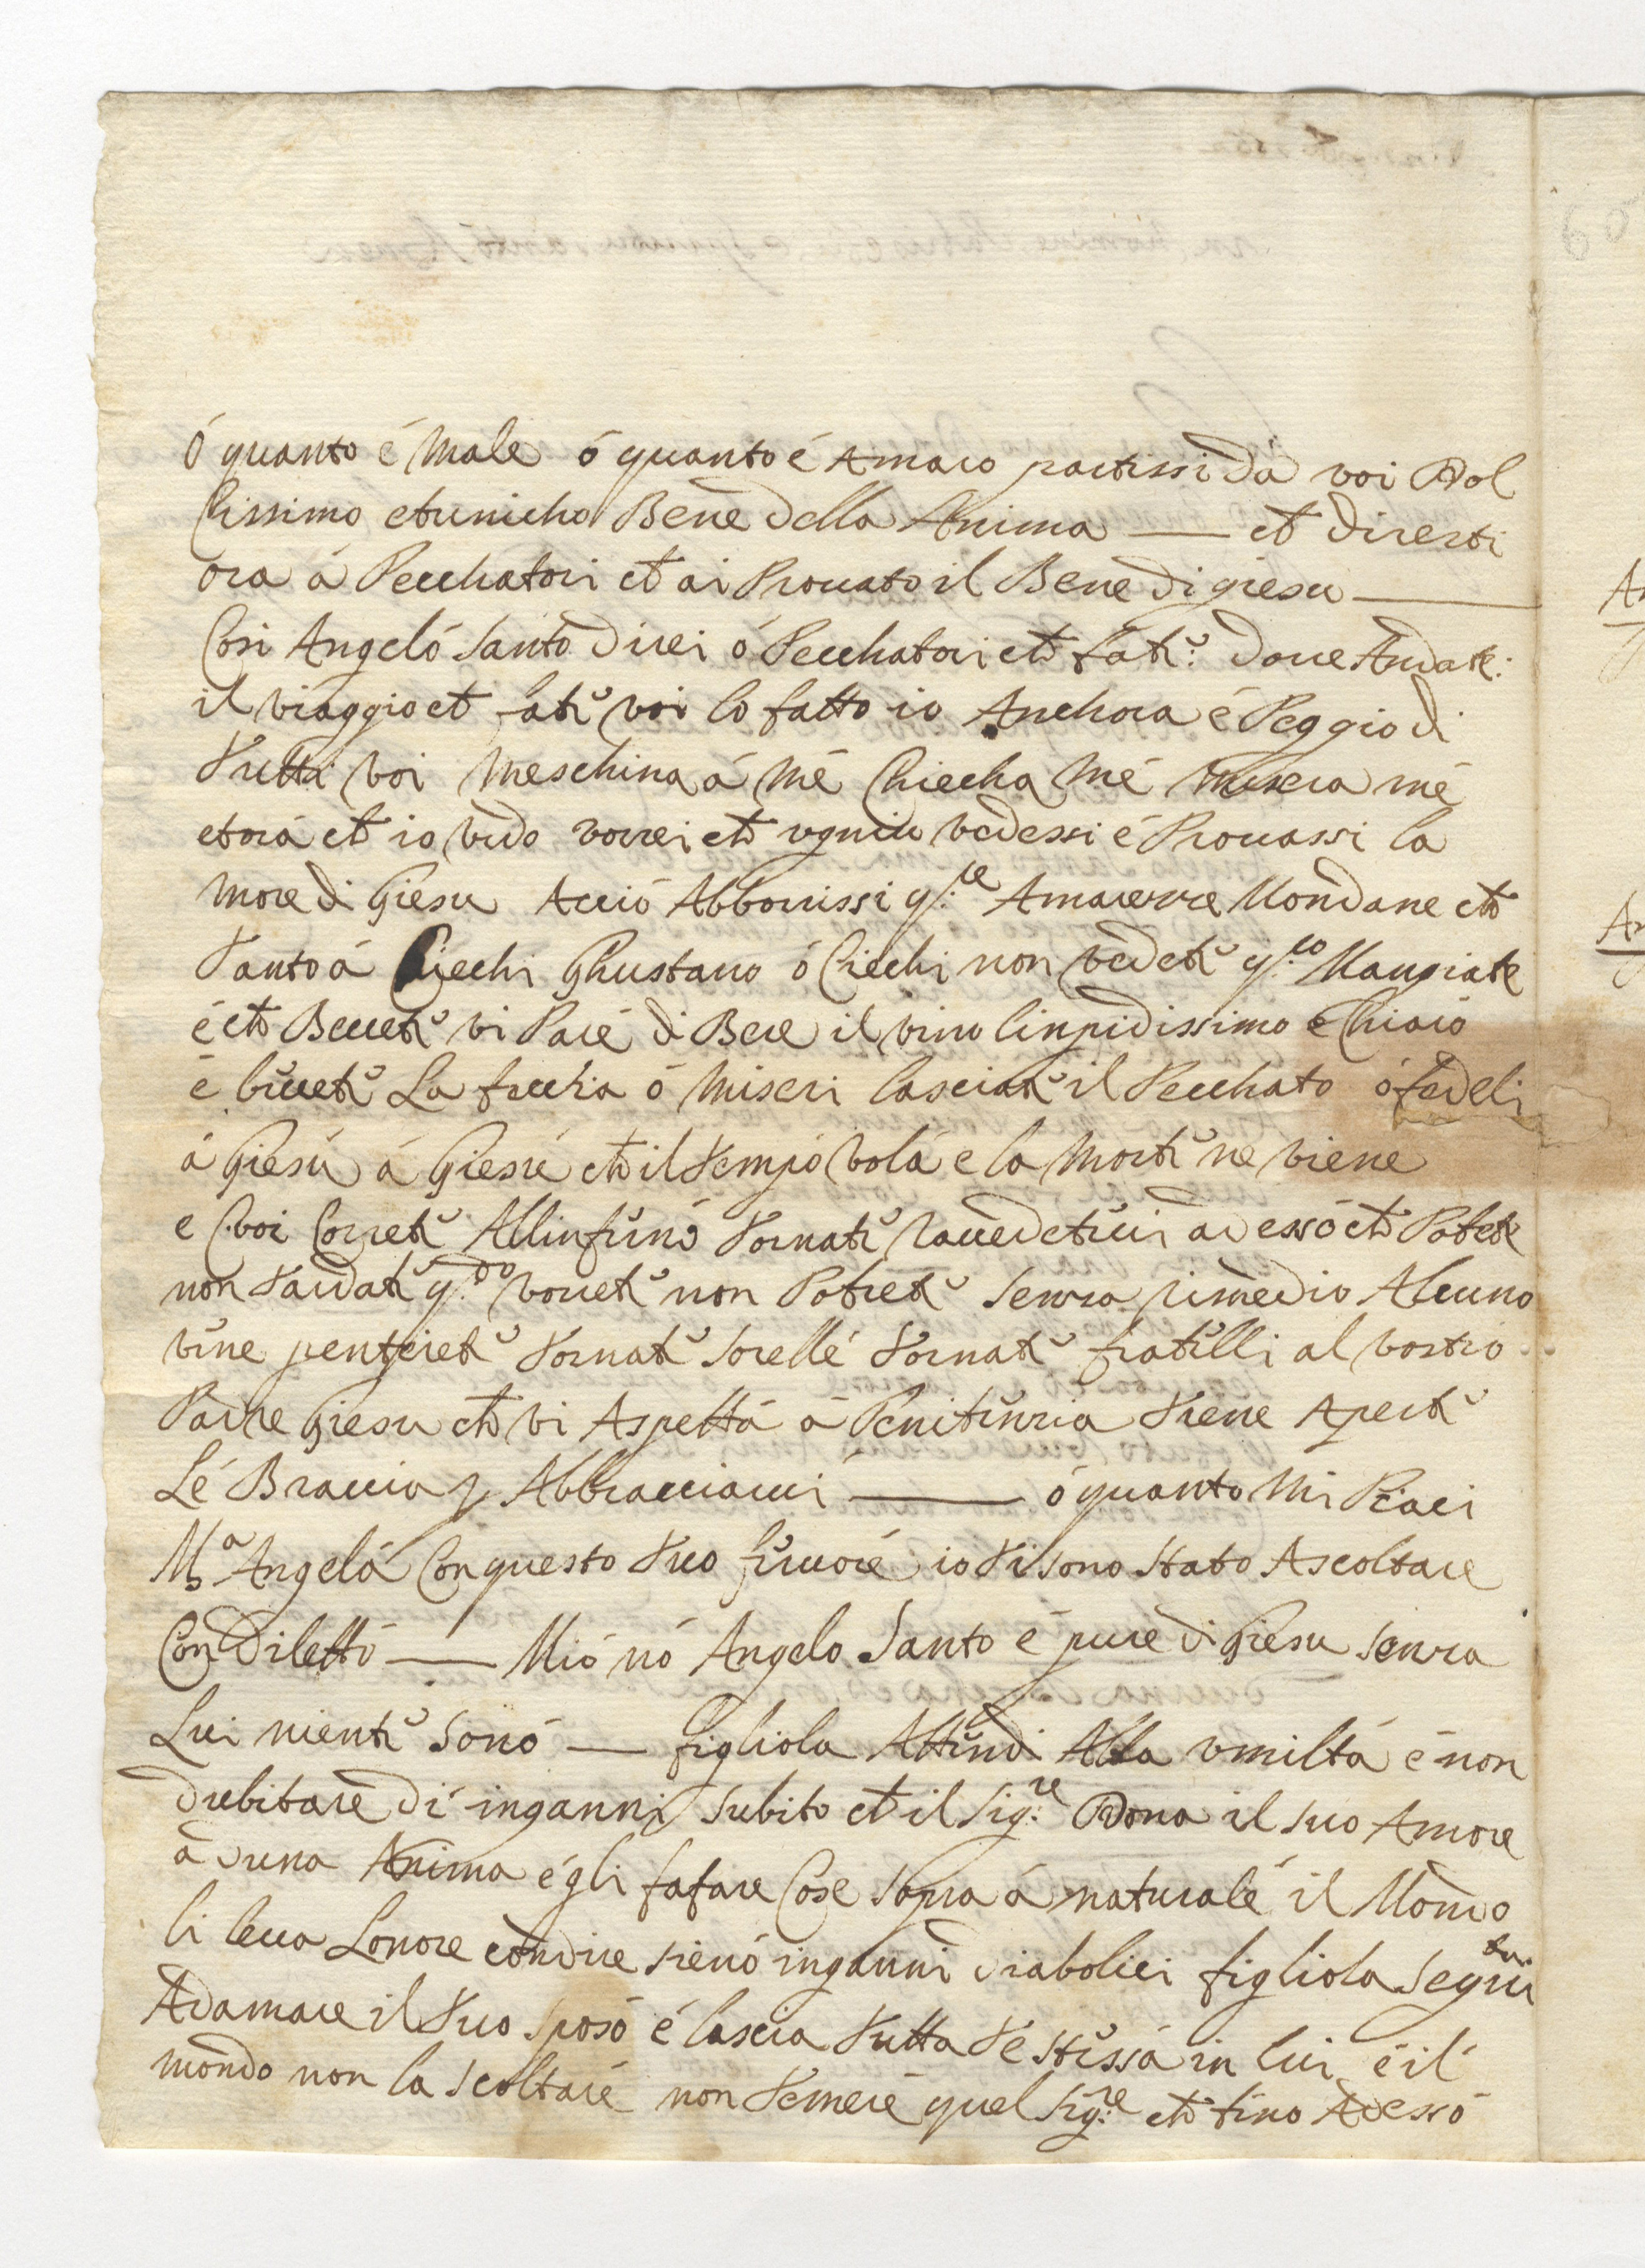 ó quanto é Male ó quanto é Amaro partissi dà voi Dol
Cissimo etunicho Bene della Anima — et diresti
ora á Pecchatori et ai Prouato il Bene di giesu —
Cosi Angeló Santo direi ó Pecchatori et fate: doue Andate:
il viaggio et fate voi lo fatto io Anchora é Peggio di
Tutti voi Meschina á Mé Ciecha Mé Misera mé
etorá et io vedo vorrei et vgniu vedessi é Prouassi la
more di Giesu Acció Abborrissi q:le Amarezze Mondane et
Tanto á Ciechi Ghustano ó Ciechi non vedete q:lo Mangiate
é et Beuete vi Paré di Bere il vino linpidissimo e Chiaro
é beuete La feccia ó Miseri lasciate il Pecchato ó fedeli
á Giesú á Giesú et il Tempo volá e la Morte ne viene
e voi Correte Allinferno Tornate Rauedeteui ad essó et Potete
non Tardate q:do vorrete non Potrete senza rimedio Alcuno
vene pentirete Tornate Sorellé Tornate fratelli al vostro
Padre Giesu et vi Aspettá á Penitenzia Tiene Aperte
Lé Braccia p Abbracciarui — ó quanto Mi Piaci
M.a Angelá Con questo Tuo feruoré io Ti sono stato Ascoltare
Con Dilettó — Mió nó Angelo Santo é pure di Giesu senza
Lui niente Sonó — figliola Attendi Alla vmiltá é non
dubitaré di inganni Subito et il Sig:re Dona il suo Amore
á duna Anima é gli fafare Cose Sopra á naturalé il Mondo
li leua Lonore condire sienó inganni diabolici figliola segui tu
Adamare il Tuo Sposó é lascia Tutta Té stessá in lui é il
mondo non la scoltaré non Temeré quel Sig:re et fino Adessó
60
An
An